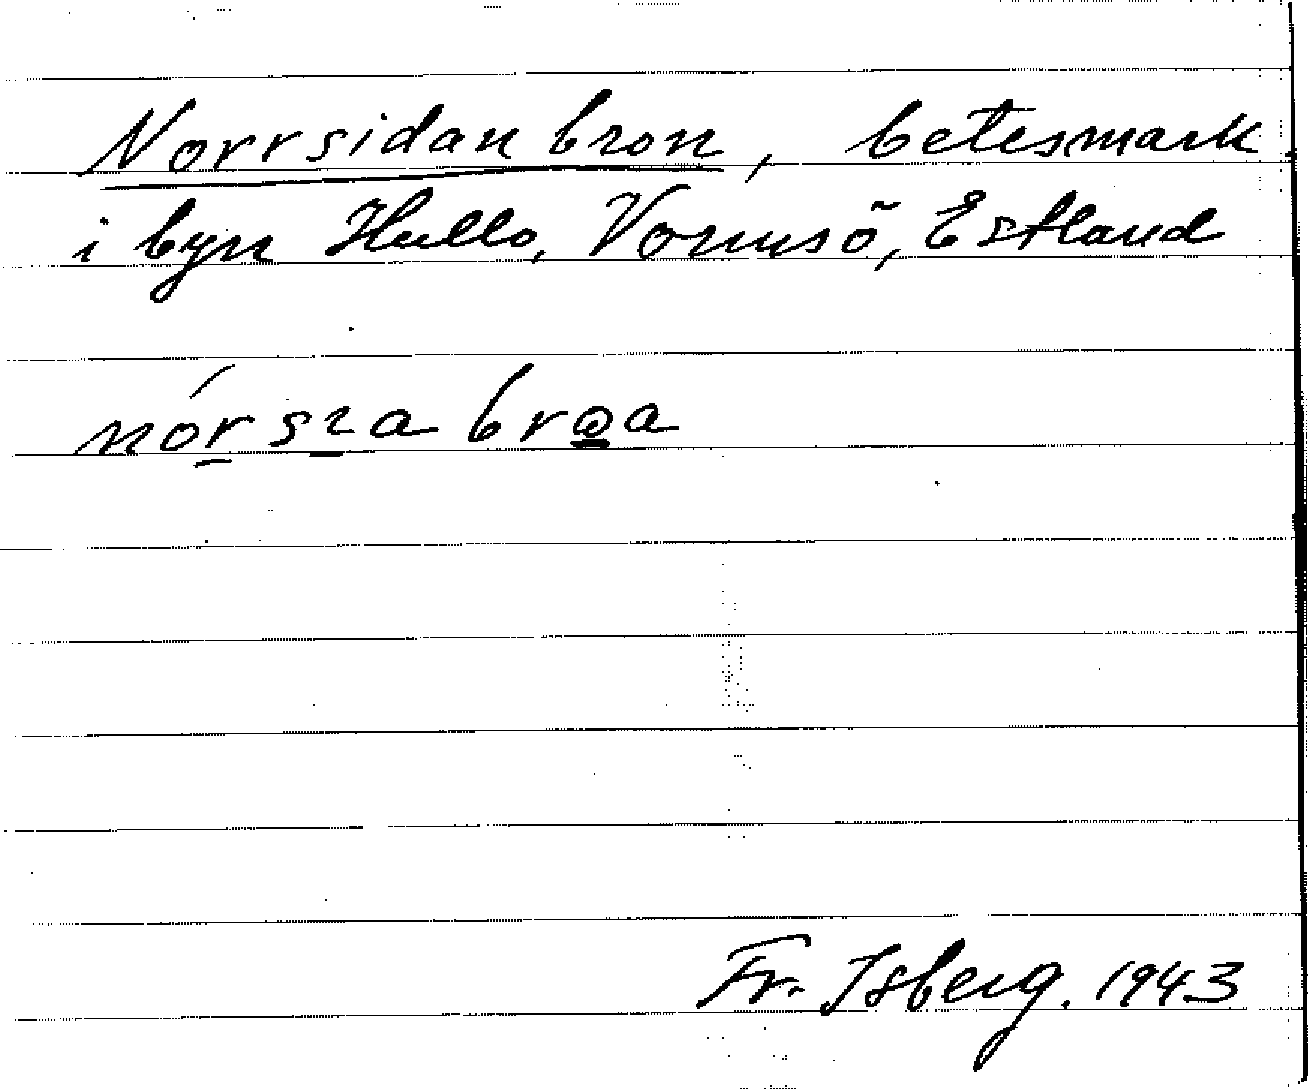 Norrsidan bron, betesmark
i byn Hullo, Vormsö, Estland
nórsɿa bra̲a
Fr. Isberg. 1943